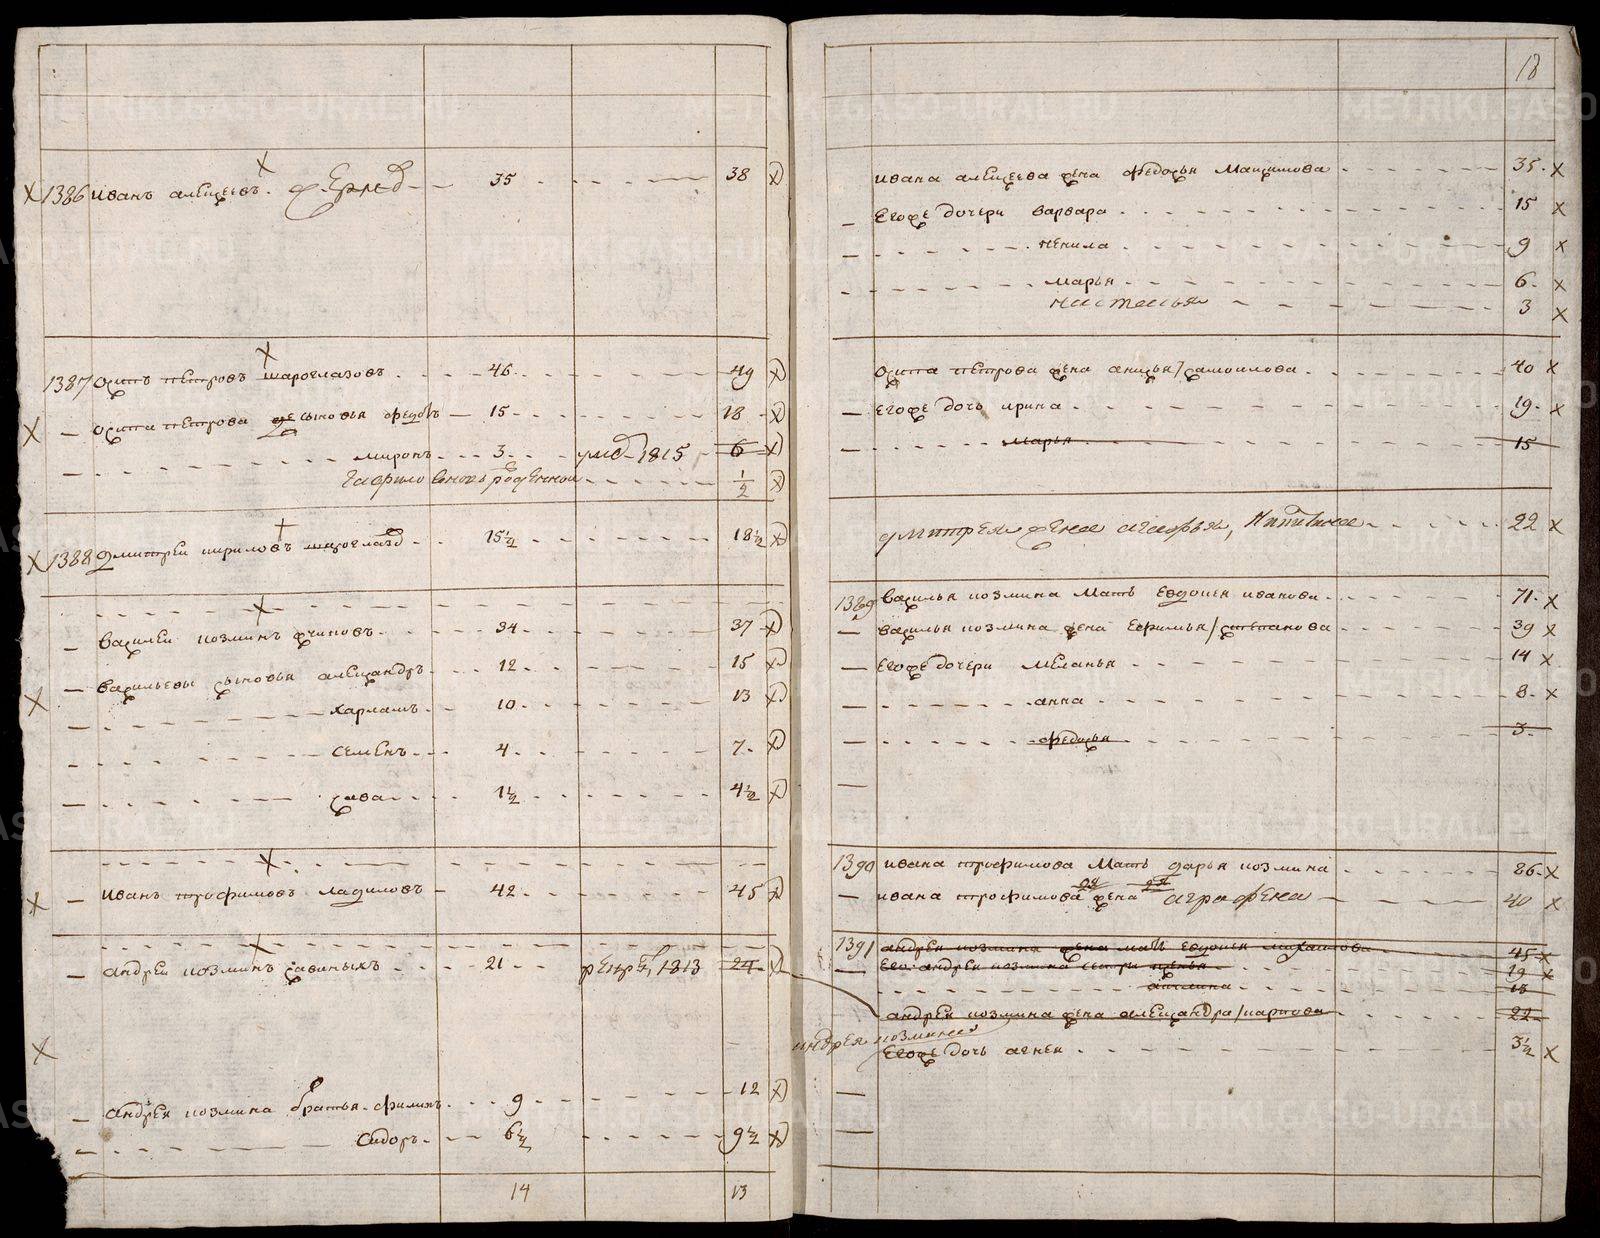 18
1386 иванъ алеѯеевъ. 35 38
1387 осипъ петровъ шароглазовъ 46 49
осипа петрова сыновья федоръ 15 18
миронъ 3 умъ 1815 6
Гаврило вновь рожденной 1/2
1388 дмитрей кириловъ шароглазъ 15 1/2 18 1/2
василей козминъ 34 37
васильевы сыновья алеѯандръ 12 15
харламъ 10 13
семенъ 4 7
сава 1 1/2 4 1/2
иванъ трофимовъ ладиловъ 42 45
андрей козминъ савиныхъ 21 рекр. 1813 24
андрея козмина братья филипъ 9 12
Сидоръ 6 1/2 9 1/2
14 13
ивана алеѯеева жена федосья Маѯимова 35
Егоже дочери варвара 15
ненила 9
марья 6
настасья 3
осипа петрова жена анисья самоилова 40
егоже дочь ирина 19
марья 15
дмитрея жена агафья, Никитина 22
1389 василья козмина мать евдокея иванова 71
василья козмина жена Ефимья степанова 39
егоже дочери меланья 14
анна 8
федосья 3
1390 ивана трофимова мать дарья козмина 86
ивана трофимова жена аграфена 40
1391 андрея козмина мать евдокея михаилова 45
его андрея козмина сестры 19
акилина 13
андрея козмина жена алеѯандра карпова 22
андрея козмина
Егоже дочь агнея 3 1/2
METRIKI.GASO-URAL.RU